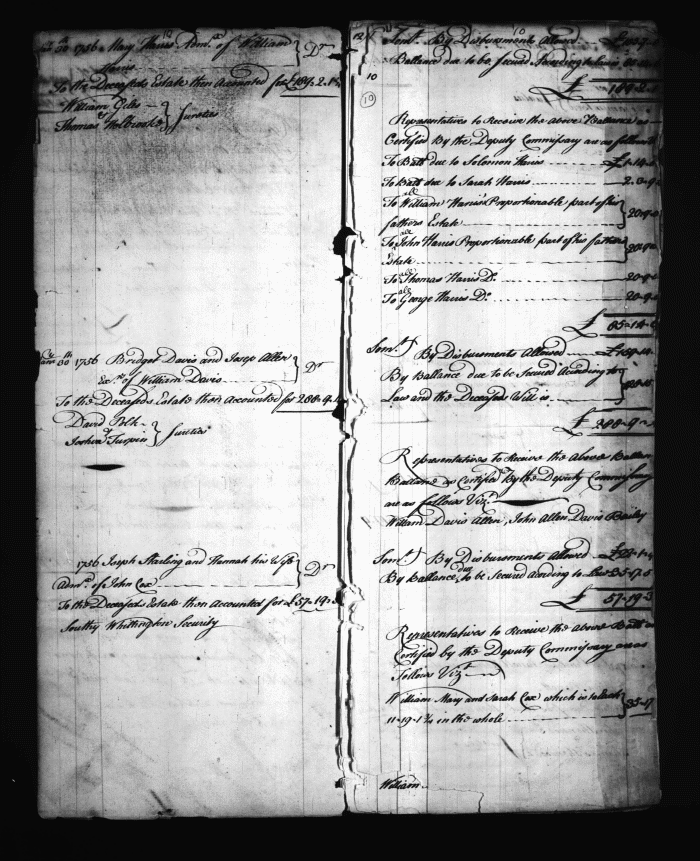 1756 Mary Harris Adm.x of William
Harris
Dr
To the Deceaseds Estate then Accounted for £189.2.
William Giles
Thomas Holbrook
Sureties
1756 Bridget Davis and Joseph Allen
Ex.rs of William Davis
Dr
To the Deceaseds Estate then Accounted for 288.9.
David Polk
Joshua Turpin
Sureties
1756 Joseph Starling and Hannah his Wife
Adm.rs of John Cox
Dr
To the Deceaseds Estate then Accounted for £57-19-3
Southy Whittington Security
12
10
10
Somt By Disbursments Allowed
Ballance due to be Secured According to Law
£ 189-2-
Representatives to Receive the above Ballance as
Certified By the Deputy Commissary are as follows
To Ball due to Solomon Harris
To Ball due to Sarah Harris 2-0-9
To William Harris's Proportionable part of his
fathers Estate 20-9-
To John Harris Proportionable part of his fathers
Estate 20-9-
To Thomas Harris Do. 20-9-
To George Harris Do. 20-9-
£ 85-14-
Somt By Disbursments Allowed
By Ballance due to be Secured According to
Law and the Deceaseds Will is
£ 288-9-
Representatives to Receive the above Ballance
Ballance as Certified By the Deputy Commissary
are as follows Vizt
William Davis Allen, John Allen Davis Bailey
Somt By Disbursments Allowed
By Ballance due to be Secured According to Law 35-17-
£ 57-19-3
Representatives to Receive the above Ball as
Certified by the Deputy Commissary are as
Follows Vizt
William Mary and Sarah Cox which is to Each
11-19-1¾ in the whole 35-17
William